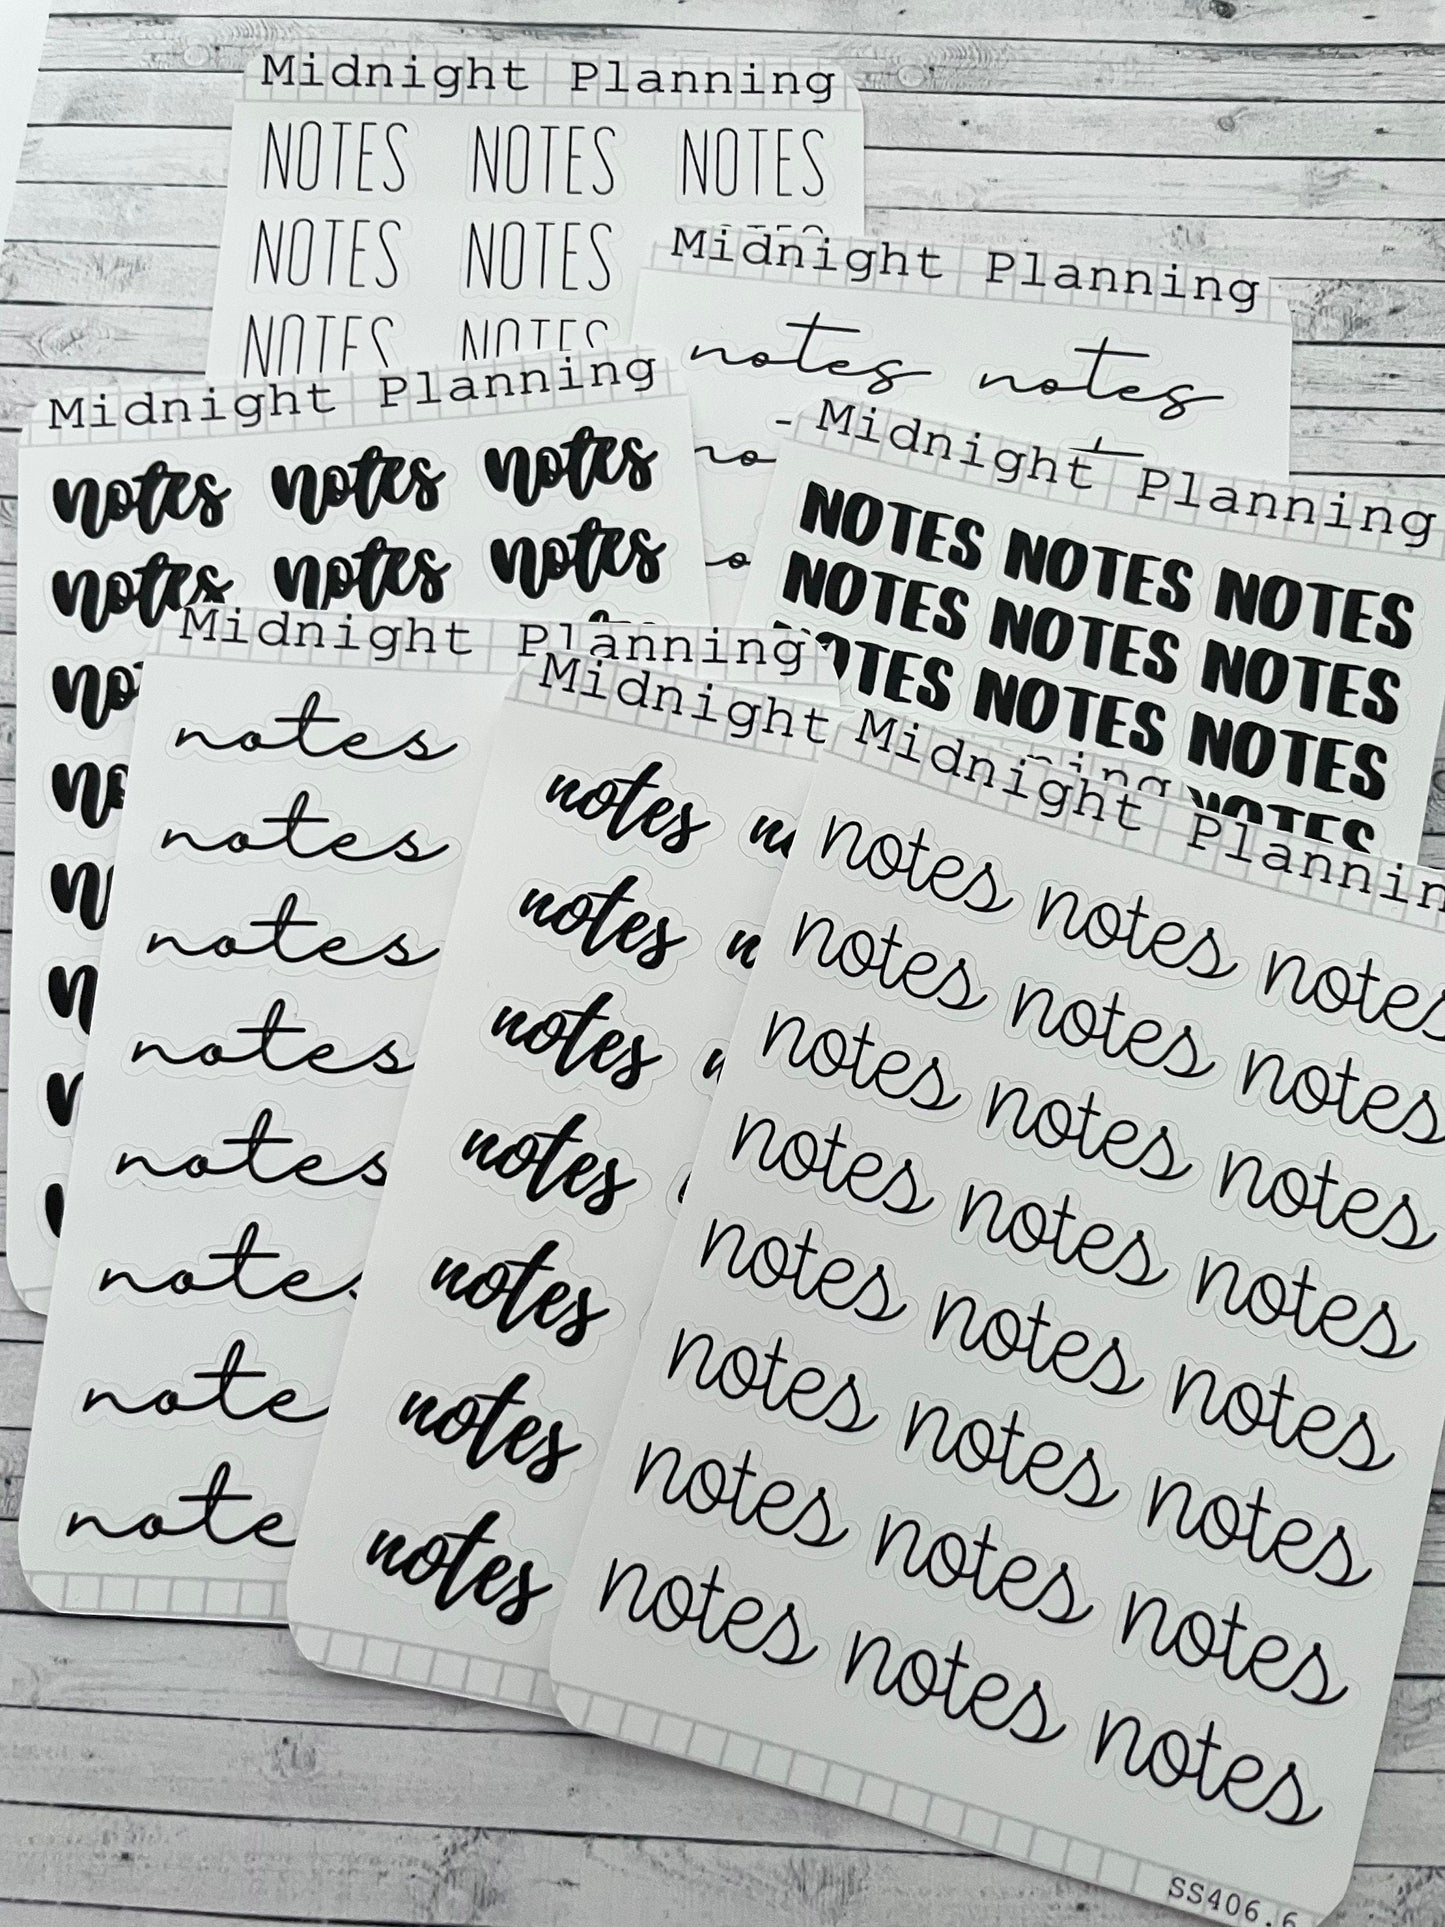 Midnight Planning
NOTES NOTES NOTES
NOTES NOTES
NOTES NOTES
Midnight Planning
notes notes
Midnight Planning
notes notes notes
notes notes notes
Midnight Planning
NOTES NOTES NOTES
NOTES NOTES NOTES
NOTES NOTES NOTES
NOTES
Midnight Planning
notes
notes
notes
notes
notes
notes
note
note
Midnight
notes
notes
notes
notes
notes
notes
notes
Midnight Plannin
notes notes notes
notes notes notes
notes notes notes
notes notes notes
notes notes notes
notes notes notes
notes notes notes
notes notes notes
SS406.6